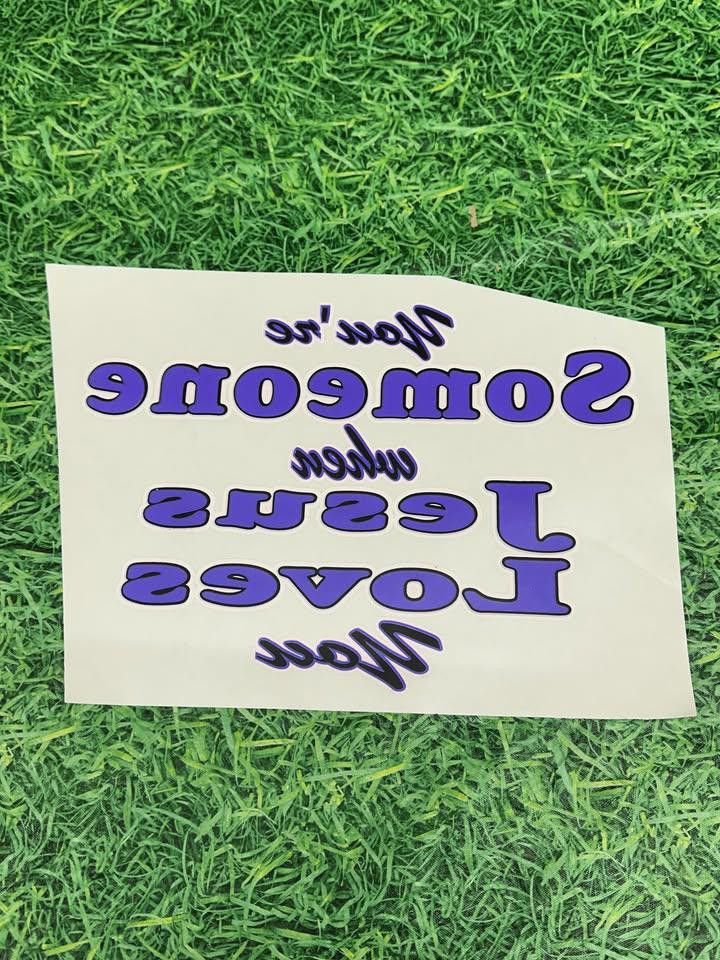 You're
Someone
when
Jesus
Loves
You